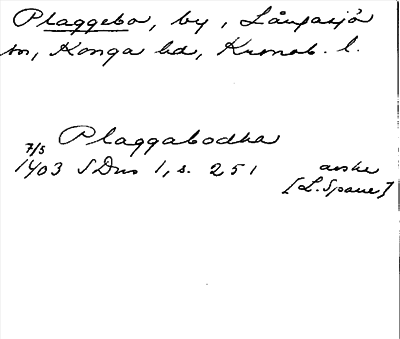 Plaggebo, by, Långasjö
sn, Konga hd, Kronob. l.
Plaggabodha
7/5
1403 SDns 1, s. 251 avskr
[L. Spane]